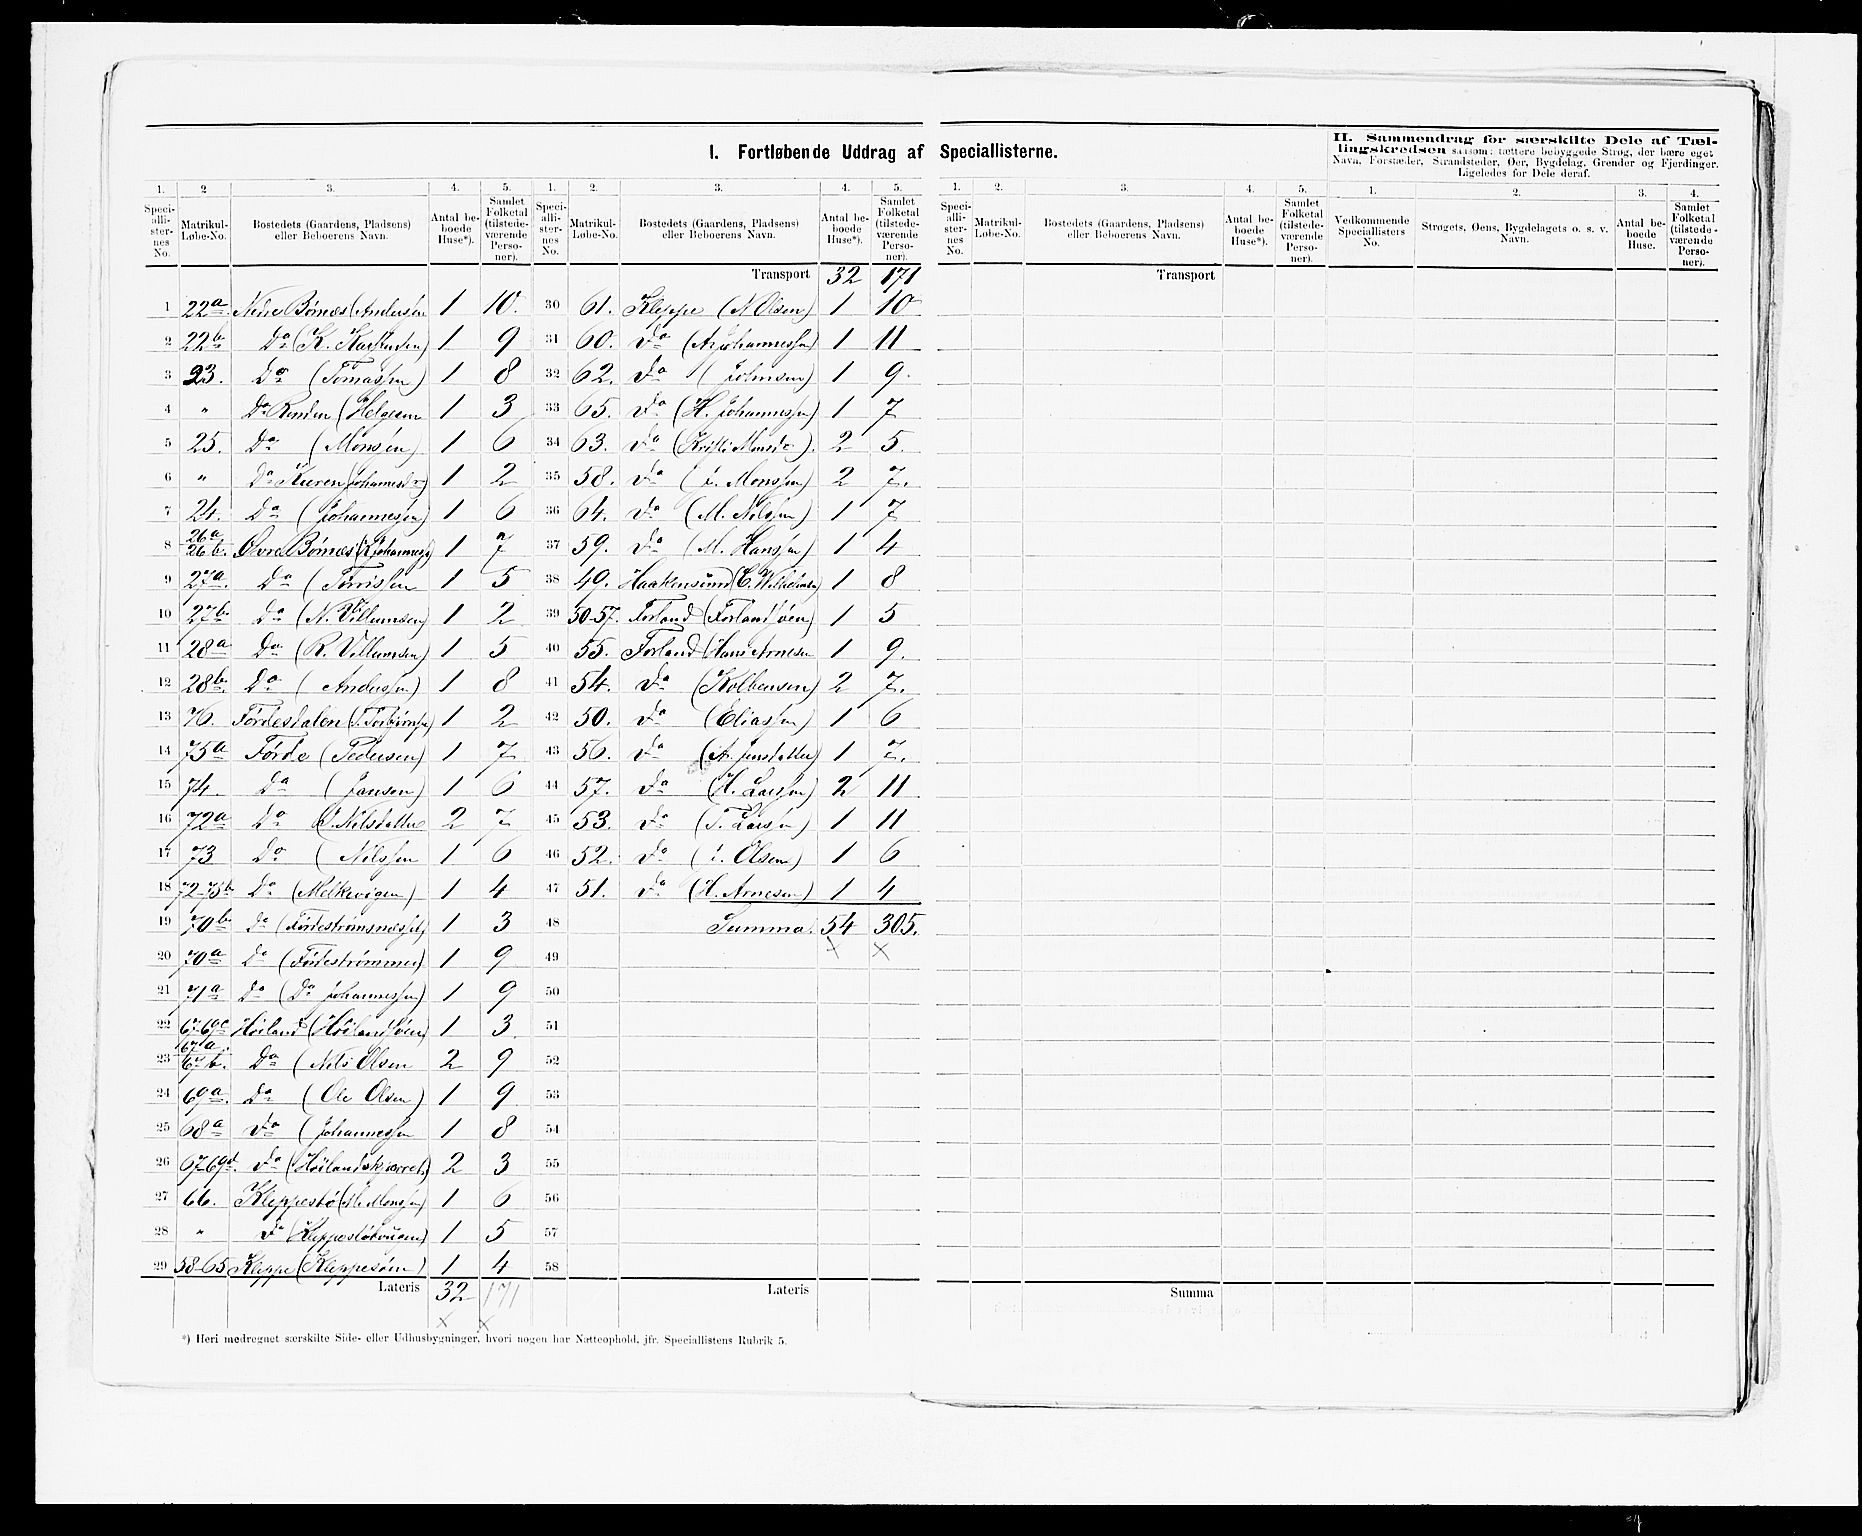 I. Fortløbende Uddrag af Speciallisterne.
II. Sammendrag for særskilte Dele af Tæl-
lingskredsen saasom: tættere bebyggede Strøg, der bære eget
Navn, Forstæder, Strandsteder, Øer, Bygdelag, Grender og Fjerdinger.
Ligeledes for Dele deraf.
1. 2 3. 4. 5. 1. 2. 3. 4. 5. 1. 2. 3. 4. 5. 1. 2. 3. 4.
Speciallisternes No. Matrikul-Løbe-No. Bostedets (Gaardens, Pladsens) eller Beboerens Navn. Antal beboede Huse*). Samlet Folketal (tilstedeværende Personer).
Speciallisternes No. Matrikul-Løbe-No. Bostedets (Gaardens, Pladsens) eller Beboerens Navn. Antal beboede Huse*). Samlet Folketal (tilstedeværende Personer).
Speciallisternes No. Matrikul-Løbe-No. Bostedets (Gaardens, Pladsens) eller Beboerens Navn. Antal beboede Huse*). Samlet Folketal (tilstedeværende Personer).
Vedkommende Speciallisters No. Strøgets, Øens, Bygdelagets o. s. v. Navn. Antal beboede Huse. Samlet Folketal (tilstedeværende Personer).
1 22a Nedre Børnæs (Andersen 1 10.
2 22b Do (K. 1 9
3 23. Do (Tomassen) 1 8
4 " Do Renden (Helgesen 1 3
5 25. Do (Monsen) 1 6
6 " Do 1 2
7 24. Do (Johannesen) 1 6
8 26a 26b. Øvre Børnæs 1 7
9 27a. Do 1 5
10 27b. Do (N. Villumsen) 1 2
11 28a Do (R. Villumsen) 1 5
12 28b. Do (Anderssen) 1 8
13 76. Førdesdalen 1 2
14 75a Førde (Pedersen) 1 7
15 74. Do (Jansen) 1 6
16 72a Do Nilsdatter 2 7
17 73 Do (Nilssen 1 6
18 72-75b Do (Melkevigen) 1 4
19 70b Do 1 3
20 70a Do (Førdestrømmen) 1 9
21 71a Do (Do Johannessen) 1 9
22 67-69c Høiland (Høilandsøen) 1 3.
23 67a. 67b. Do (Nils Olsen 2 9
24 69a. Do (Ole Olsen) 1 9
25 68a Do (Johannessen 1 8
26 67-69d. Do 2 3
27 66. Kleppestø (M. Monssen) 1 6
28 " Do 1 5
29 58-65 Kleppe (Kleppesøen) 1 4
Lateris 32 171
x x
Transport 32 171
30 61. Kleppe (N. Olsen) 1 10
31 60. Do 1 11
32 62. Do (Johnsen) 1 9.
33 65. Do (H. Johannessen) 1 7
34 63. Do 2 5.
35 58. Do (Monssen) 2 7.
36 64. Do (M. Nilssen) 1 7
37 59. Do (M. Hanssen) 1 4
38 49. Haakensund 1 8
39 50-57. Forland (Forlandsøen) 1 5
40 55. Forland (Hans Arnesen 1 9.
41 54. Do (Kolbensen) 2 7.
42 50. Do (Eliassen) 1 6
43 56. Do 1 7.
44 57. Do (H. Larssen) 2 11
45 53. Do (T. Larssen) 1 11
46 52. Do (Olsen) 1 6
47 51. Do (H. Arnesen) 1 4
48 Summa. 54 305.
x x
49
50
51
52
53
54
55
56
57
58
Lateris
Transport
Summa
*) Heri medregnet særskilte Side- eller Udhusbygninger, hvori nogen har Natteophold, jfr. Speciallistens Rubrik 5.